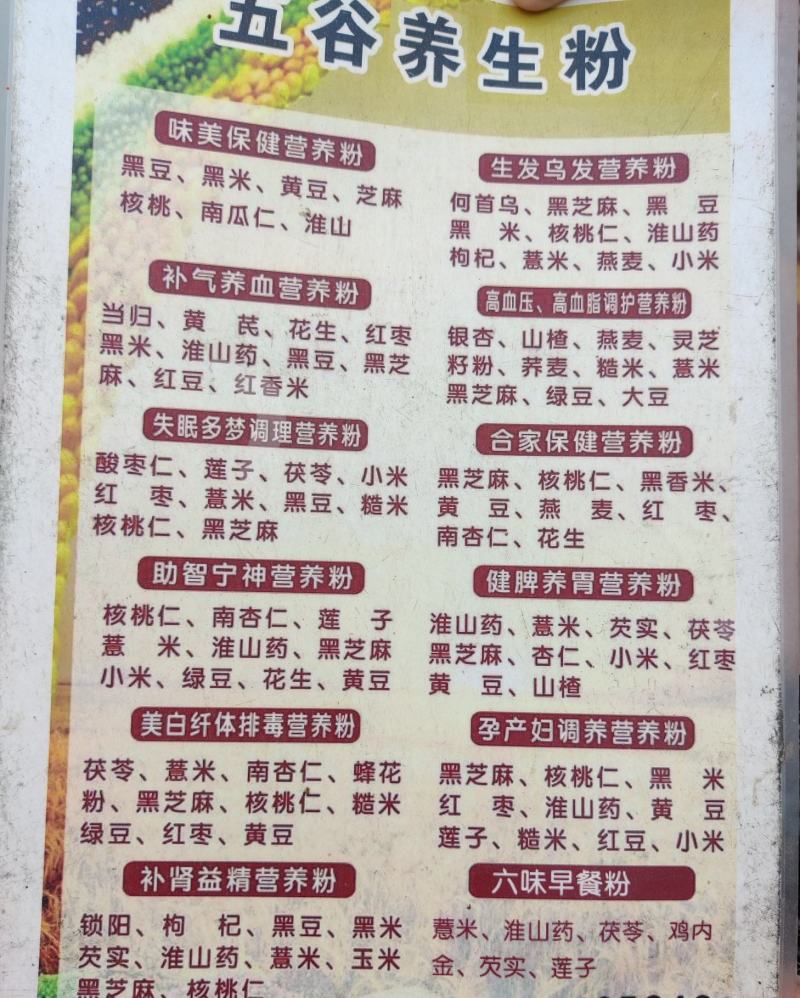 五谷养生粉
味美保健营养粉
黑豆、黑米、黄豆、芝麻
核桃、南瓜仁、淮山
补气养血营养粉
当归、黄 芪、花生、红枣
黑米、淮山药、黑豆、黑芝
麻、红豆、红香米
失眠多梦调理营养粉
酸枣仁、莲子、茯苓、小米
红 枣、薏米、黑豆、糙米
核桃仁、黑芝麻
助智宁神营养粉
核桃仁、南杏仁、莲 子
薏 米、淮山药、黑芝麻
小米、绿豆、花生、黄豆
美白纤体排毒营养粉
茯苓、薏米、南杏仁、蜂花
粉、黑芝麻、核桃仁、糙米
绿豆、红枣、黄豆
补肾益精营养粉
锁阳、枸 杞、黑豆、黑米
芡实、淮山药、薏米、玉米
黑芝麻、核桃仁
生发乌发营养粉
何首乌、黑芝麻、黑 豆
黑 米、核桃仁、淮山药
枸杞、薏米、燕麦、小米
高血压、高血脂调护营养粉
银杏、山楂、燕麦、灵芝
籽粉、荞麦、糙米、薏米
黑芝麻、绿豆、大豆
合家保健营养粉
黑芝麻、核桃仁、黑香米、
黄 豆、燕 麦、红 枣、
南杏仁、花生
健脾养胃营养粉
淮山药、薏米、芡实、茯苓
黑芝麻、杏仁、小米、红枣
黄 豆、山楂
孕产妇调养营养粉
黑芝麻、核桃仁、黑 米
红 枣、淮山药、黄 豆
莲子、糙米、红豆、小米
六味早餐粉
薏米、淮山药、茯苓、鸡内
金、芡实、莲子